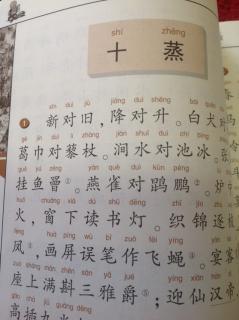 shí zhēng
十 蒸
xīn duì jiù jiàng duì shēng bái quǎn
① 新对旧，降对升。白犬
gé jīn duì lí zhàng jiàn shuǐ duì chí bīng
葛巾对藜杖，涧水对池冰。
guà yú zēng yàn què duì kūn péng lú
挂鱼罾②。燕雀对鹍鹏③。炉
huǒ chuāng xià dú shū dēng zhī jǐn zhú
火，窗下读书灯。织锦逐
fèng huà píng wù bǐ zuò fēi yíng yàn kè
风，画屏误笔作飞蝇④。宴客
zuò shàng mǎn zhēn sān yǎ jué yíng xiān hàn dì
座上满斟三雅爵⑤；迎仙汉帝